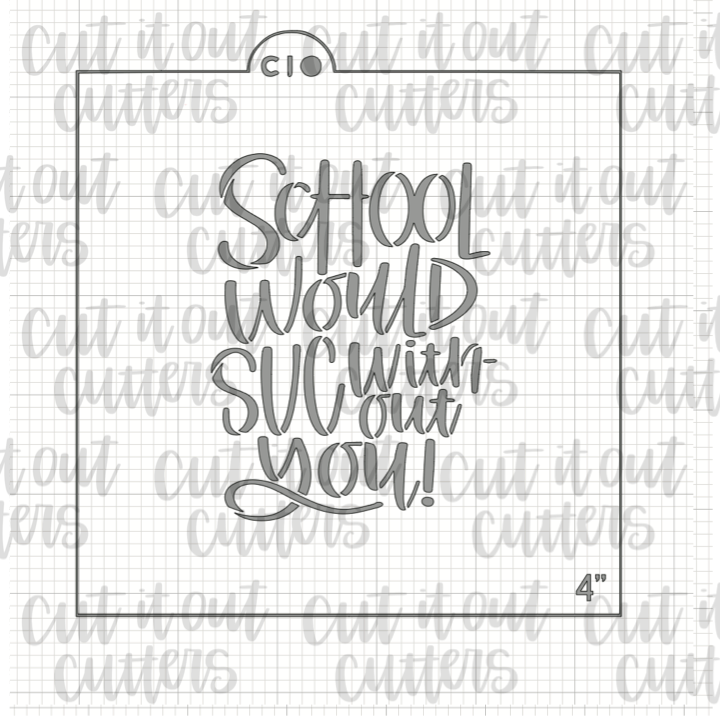 CIO
SCHOOL
WOULD
SUC with-
out
you!
4"
cut it out
cutters